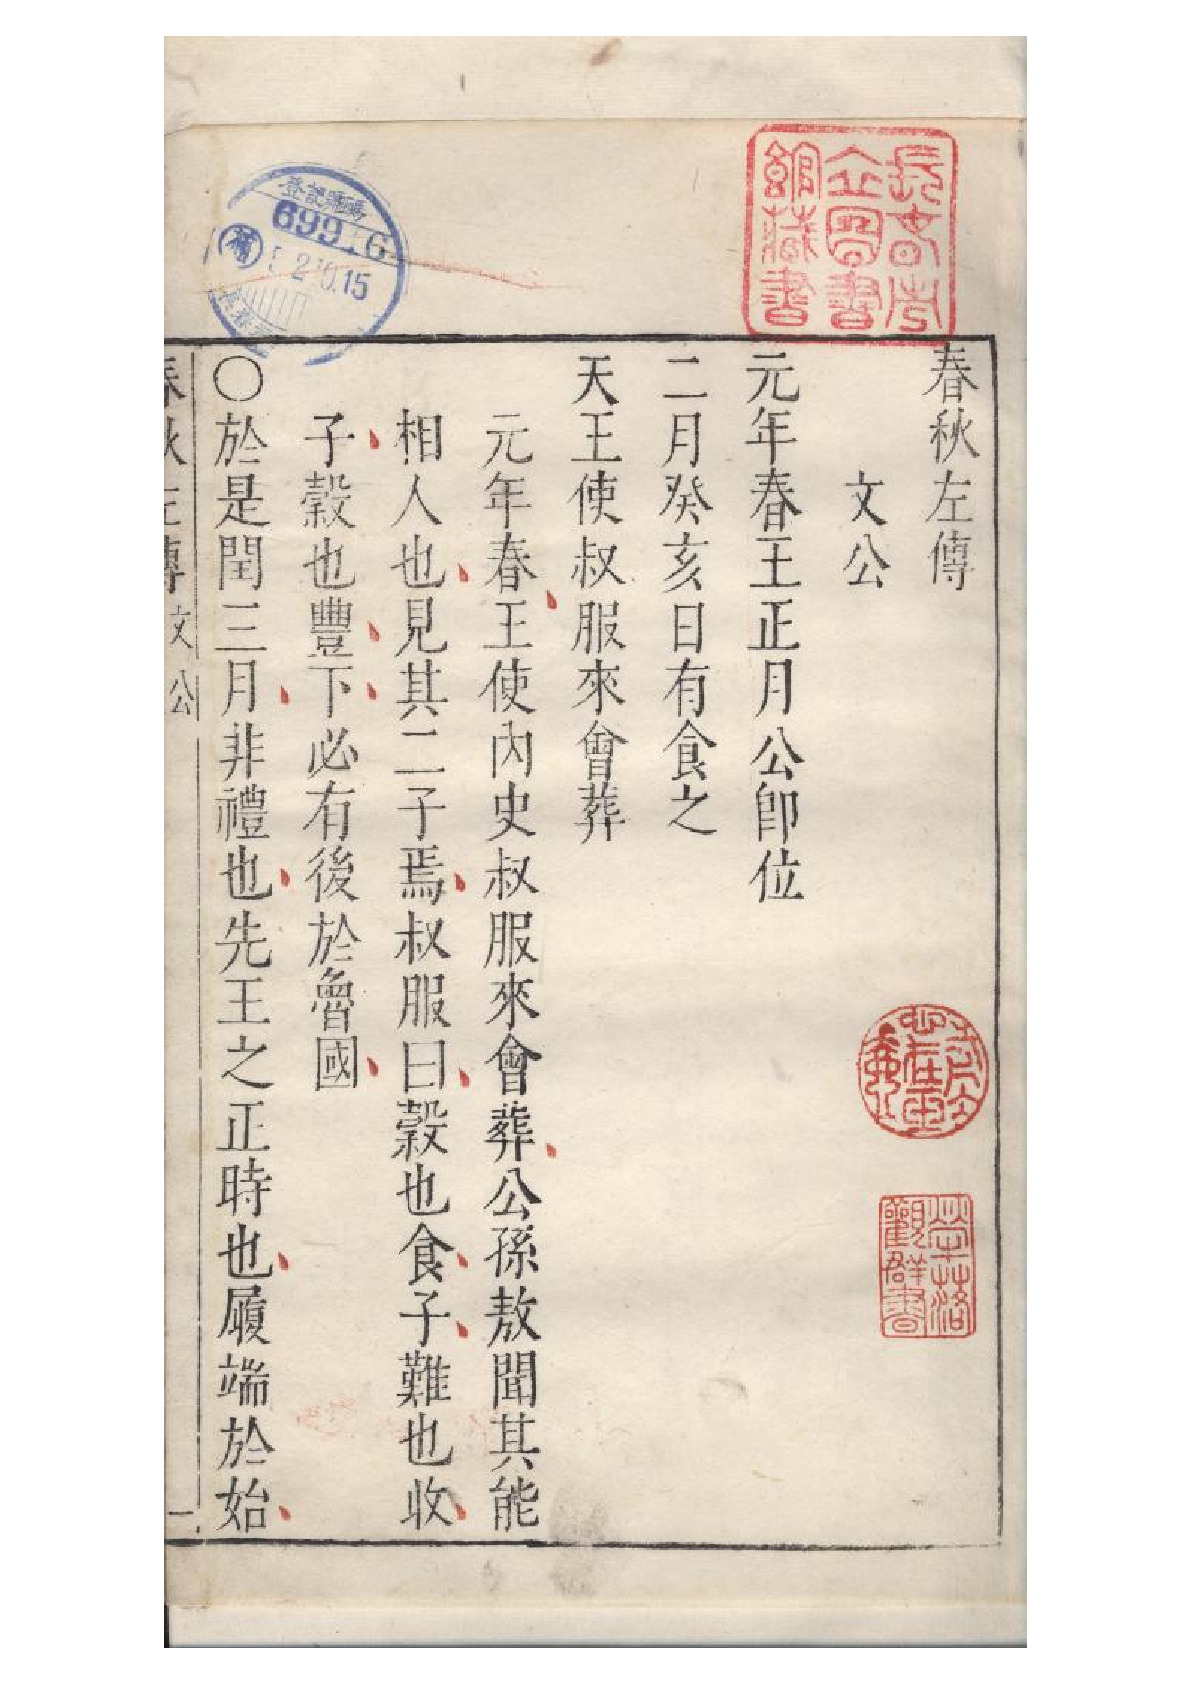 春秋左傳
文公
元年春王正月公卽位
二月癸亥日有食之
天王使叔服來會葬
元年春王使內史叔服來會葬公孫敖聞其能
相人也見其二子焉叔服曰穀也食子難也收
子穀也豐下必有後於魯國
〇於是閏三月非禮也先王之正時也履端於始
春秋左傳 文公 一
長春市立圖書館藏書
登記號碼
699
補
15
觀群書